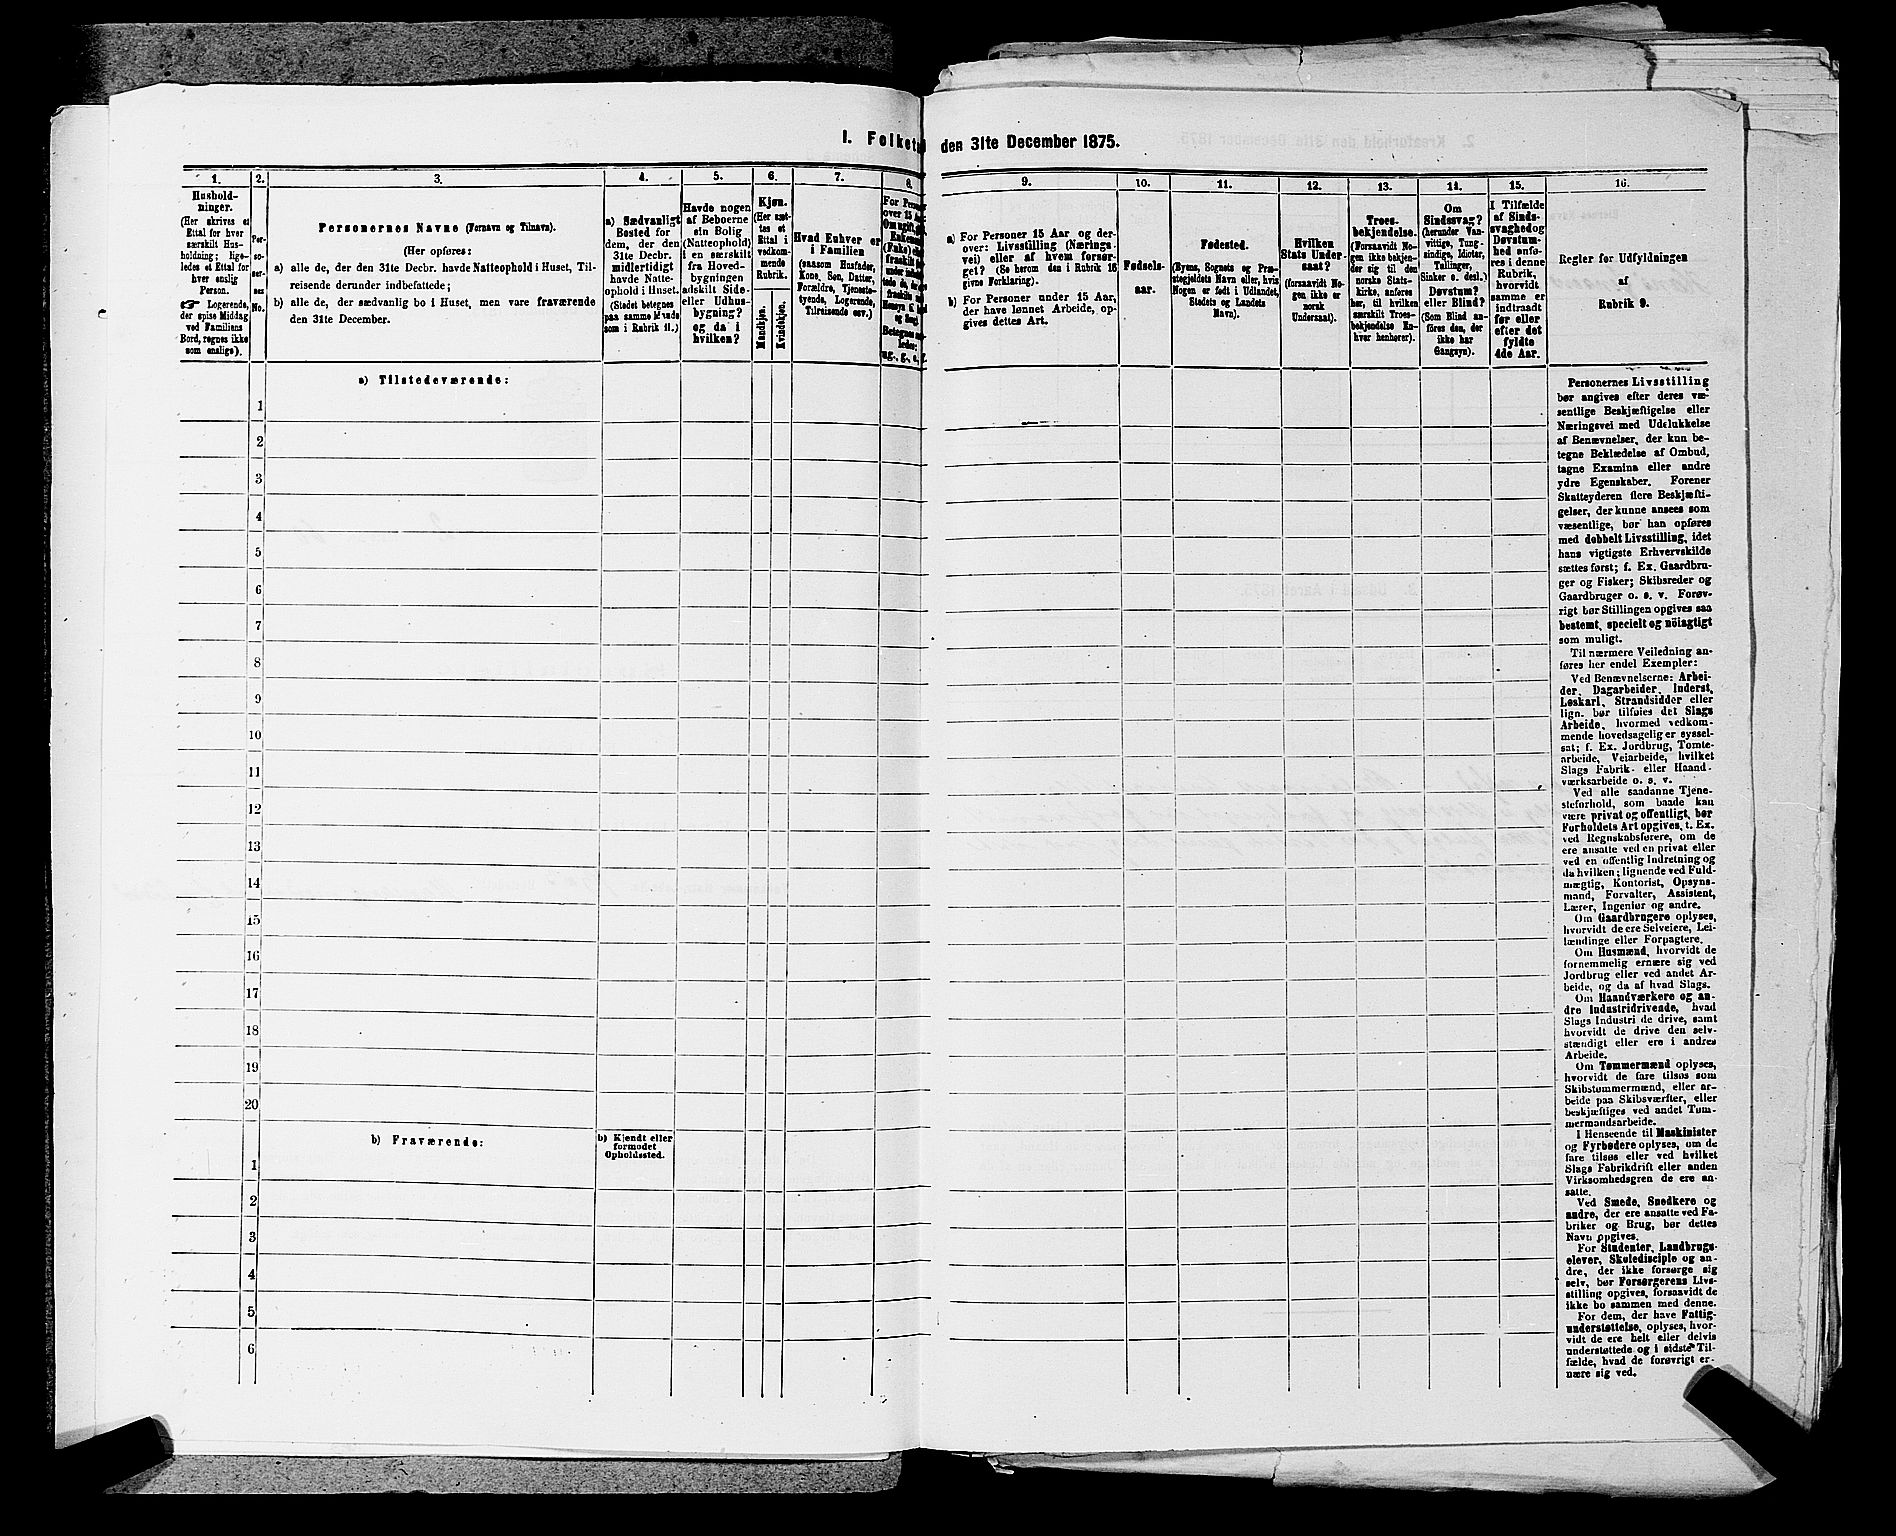 I. Folket den 31te December 1875.
1.
Hushold-
ninger.
(Her skrives et
Ettal for hver
særskilt Hus-
holdning; lige-
ledes et Ettal for
hver enslig
Person.
☞ Logerende,
der spise Middag
ved Familiens
Bord, regnes ikke
som enslige).
2.
Per-
so-
ner-
nes
No.
3.
Personernes Navne (Fornavn og Tilnavn).
(Her opføres:
a) alle de, der den 31te Decbr. havde Natteophold i Huset, Til-
reisende derunder indbefattede;
b) alle de, der sædvanlig bo i Huset, men vare fraværende
den 31te December.
4.
a) Sædvanligt
Bosted for
dem, der den
31te Decbr.
midlertidigt
havde Natte-
ophold i Huset.
(Stedet betegnes
paa samme Maade
som i Rubrik 11.)
5.
Havde nogen
af Beboerne
sin Bolig
(Natteophold)
i en særskilt
fra Hoved-
bygningen
adskilt Side-
eller Udhus-
bygning?
og da i
hvilken?
6.
Kjøn.
(Her sæt-
tes et
Ettal i
vedkom-
mende
Rubrik.
Mandkjøn.
Kvindekjøn.
7.
Hvad Enhver er
i Familien
(saasom Husfader,
Kone, Søn, Datter,
Forældre, Tjeneste-
tyende, Logerende,
Tilreisende osv.)
8.
For Pers
over 15 Aar
9.
a) For Personer 15 Aar og der-
over: Livsstilling (Nærings-
vei) eller af hvem forsør-
get? (Se herom den i Rubrik 16
givne Forklaring).
b) For Personer under 15 Aar,
der have lønnet Arbeide, op-
gives dettes Art.
10.
Fødsels-
aar.
11.
Fødested.
(Byens, Sognets og Præ-
stegjeldets Navn eller, hvis
Nogen er født i Udlandet,
Stedets og Landets
Navn).
12.
Hvilken
Stats Under-
saat?
(forsaavidt No-
gen ikke er
norsk
Undersaat).
13.
Troes-
bekjendelse.
(Forsaavidt No-
gen ikke bekjen-
der sig til den
norske Stats-
kirke, anføres
her, til hvilken
særskilt Troes-
bekjendelse En-
hver henhører).
14.
Om
Sindssvag?
(herunder Van-
vittige, Tung-
sindige, Idioter,
Tullinger,
Sinker o. desl.)
Døvstum?
eller Blind?
(Som Blind an-
føres den, der
ikke har
Gangsyn).
15.
I Tilfælde
af Sinds-
svaghed og
Døvstum-
hed anfø-
res i denne
Rubrik,
hvorvidt
samme er
indtraadt
før eller
efter det
fyldte
4de Aar.
16.
Regler for Udfyldningen
af
Rubrik 9.
a) Tilstedeværende:
1
2
3
4
5
6
7
8
9
10
11
12
13
14
15
16
17
18
19
20
b) Fraværende:
b) Kjendt eller
formodet
Opholdssted.
1
2
3
4
5
6
Personernes Livsstilling
bør angives efter deres væ-
sentlige Beskjæftigelse eller
Næringsvei med Udelukkelse
af Benævnelser, der kun be-
tegne Beklædelse af Ombud,
tagne Examina eller andre
ydre Egenskaber. Forener
Skatteyderen flere Beskjæfti-
gelser, der kunne ansees som
væsentlige, bør han opføres
med dobbelt Livsstilling, idet
hans vigtigste Erhvervskilde
sættes først; f. Ex. Gaardbru-
ger og Fisker; Skibsreder og
Gaardbruger o. s. v. Forøv-
rigt bør Stillingen opgives saa
bestemt, specielt og nöiagtigt
som muligt.
Til nærmere Veiledning an-
føres her endel Exempler:
Ved Benævnelserne: Arbei-
der, Dagarbeider, Inderst,
Løskarl, Strandsidder eller
lign. bør tilføies det Slags
Arbeide, hvormed vedkom-
mende hovedsagelig er syssel-
sat; f. Ex. Jordbrug, Tomte-
arbeide, Veiarbeide, hvilket
Slags Fabrik- eller Haand-
værksarbeide o. s. v.
Ved alle saadanne Tjene-
steforhold, som baade kan
være privat og offentligt, bør
Forholdets Art opgives, t. Ex.
ved Regnskabsførere, om de
ere ansatte ved en privat eller
ved en offentlig Indretning og
da hvilken; lignende ved Fuld-
mægtig, Kontorist, Opsyns-
mand, Forvalter, Assistent,
Lærer, Ingeniør og andre.
Om Gaardbrugere oplyses,
hvorvidt de ere Selveiere, Lei-
lændinge eller Forpagtere.
Om Husmænd, hvorvidt de
fornemmelig ernære sig ved
Jordbrug eller ved andet Ar-
beide, og da af hvad Slags.
Om Haandværkere og an-
dre Industridrivende, hvad
Slags Industri de drive, samt
hvorvidt de drive den selv-
stændigt eller ere i andres
Arbeide.
Om Tømmermænd oplyses,
hvorvidt de fare tilsøs som
Skibstømmermænd, eller ar-
beide paa Skibsværfter, eller
beskjæftiges ved andet Tøm-
mermandsarbeide.
I Henseende til Maskinister
og Fyrbødere oplyses, om de
fare tilsøs eller ved hvilket
Slags Fabrikdrift eller anden
Virksomhedsgren de ere an-
satte.
Ved Smede, Snedkere og
andre, der ere ansatte ved Fa-
briker og Brug, bør dettes
Navn opgives.
For Studenter, Landbrugs-
elever, Skoledisciple og an-
dre, der ikke forsørge sig
selv, bør Forsørgerens Livs-
stilling opgives, forsaavidt de
ikke bo sammen med denne.
For dem, der have Fattig-
understøttelse, oplyses, hvor-
vidt de ere helt eller delvis
understøttede og i sidste Til-
fælde, hvad de forøvrigt er-
nære sig ved.